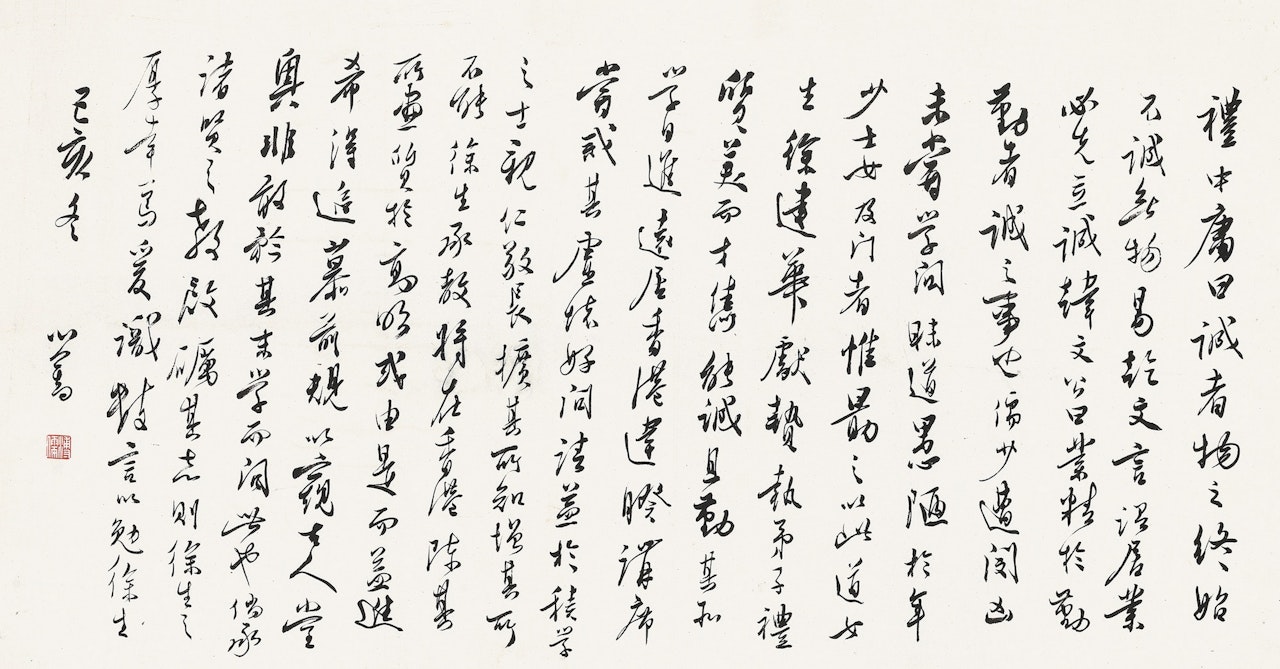 禮中庸曰誠者物之終始
不誠無物易乾文言謂居業
必先立誠韓文公曰業精於勤
勤者誠之事也儒少遭閔凶
未嘗學問昧道愚陋於年
少士女及門者惟勗之以此道女
生徐建華獻贄執弟子禮
質美而才雋能誠且勤其於
學日進遠居香港違暌講席
嘗戒其虛懷好問請益於積學
之士親仁敬長擴其所知增其所
不能徐生承教將在香港陳其
所畫質於高明或由是而益進
希淂追慕前規以窺古人堂
奧非敢矜其末學而問世也倘承
諸賢之教啟礪其志則徐生之
厚幸焉爰識數言以勉徐生
己亥冬
心畬